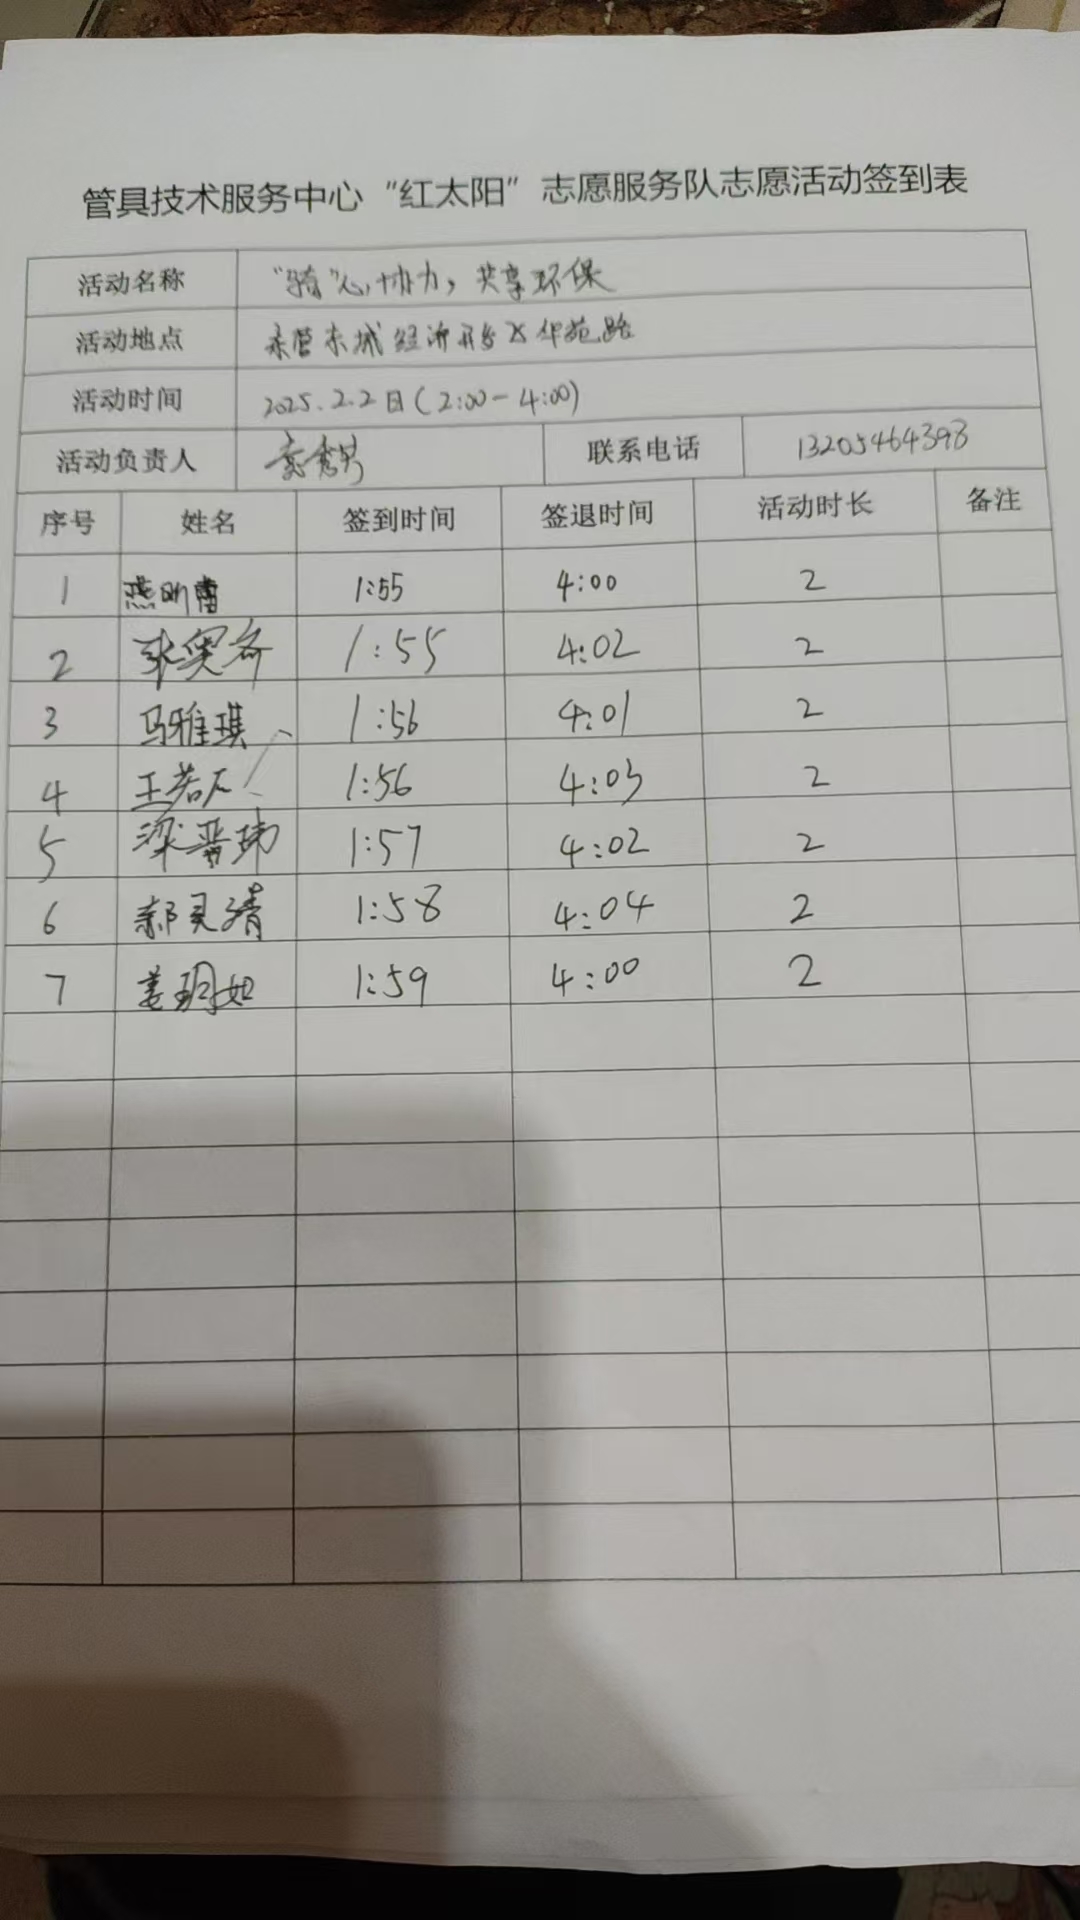 管具技术服务中心“红太阳”志愿服务队志愿活动签到表
活动名称 “骑”心协力，共享环保
活动地点 东营东城经济开发区华苑路
活动时间 2025.2.2日(2:00-4:00)
活动负责人 联系电话 13205464393
序号 姓名 签到时间 签退时间 活动时长 备注
1 燕昕雷 1:55 4:00 2
2 张奕奇 1:55 4:02 2
3 马雅琪 1:56 4:01 2
4 王若 1:56 4:03 2
5 梁晋玮 1:57 4:02 2
6 郝灵清 1:58 4:04 2
7 姜玥如 1:59 4:00 2